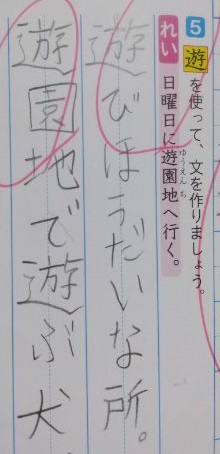 5 遊を使って、文を作りましょう。
れい 日曜日に遊園地へ行く。
ゆうえんち
遊びほうだいな所。
遊園地で遊ぶ犬。